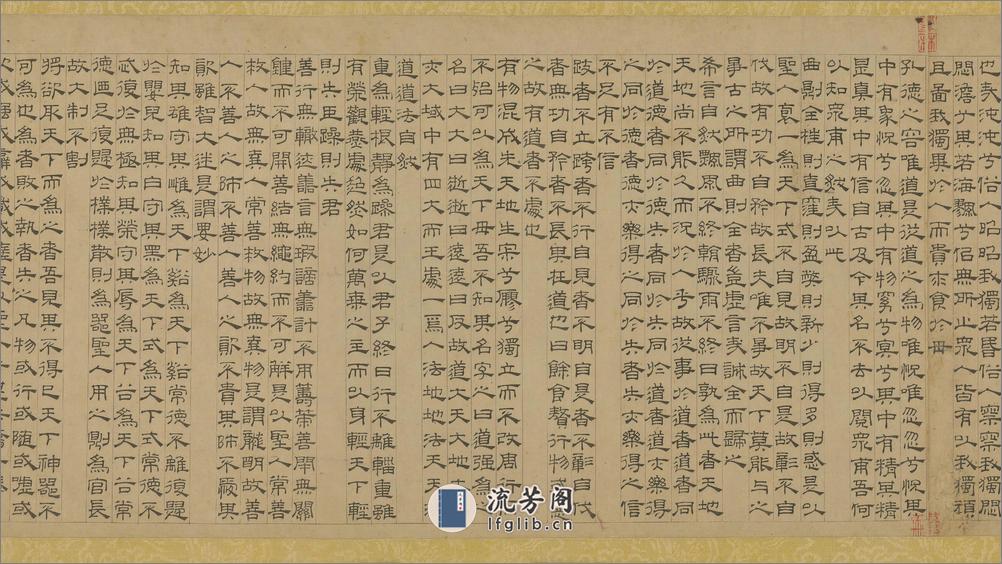 也沌沌兮俗人昭昭我獨若昏俗人察察我獨悶
悶澹兮其若海飂兮似無所止衆人皆有以我獨頑
且圖我獨異於人而貴求食於母
孔德之容唯道是從道之為物唯怳唯忽忽兮怳其
中有象怳兮忽其中有物窈兮冥兮其中有精其精
甚真其中有信自古及今其名不去以閱衆甫吾何
以知衆甫之然哉以此
曲則全枉則直窪則盈弊則新少則得多則惑是以
聖人裒一為天下式不自見故明不自是故彰不自
伐故有功不自矜故長夫唯不爭故天下莫能與之
爭古之所謂曲則全者豈虛言哉誠全而歸之
希言自然飄風不終朝驟雨不終日孰為此者天地
天地尚不能久而況於人乎故從事於道者道者同
於道德者同於德失者同於失同於道者道亦樂得
之同於德者德亦樂得之同於失者失亦樂得之信
不足有不信
跂者不立跨者不行自見者不明自是者不彰自伐
者無功自矜者不長其在道也曰餘食贅行物或惡
之故有道者不處也
有物混成先天地生宋兮廖兮獨立而不改周行而
不殆可以為天下母吾不知其名字之曰道強為之
名曰大大曰逝逝曰遠遠曰反故道大天大地大
亦大域中有四大而王處一焉人法地地法天天
道道法自然
重為輕根靜為躁君是以君子終日行不離輜重雖
有榮觀燕處超然如何萬乘之主而以身輕天下輕
則失臣躁則失君
善行無轍迹善言無瑕讁善計不用籌策善閉無關
鍵而不可開善結無繩約而不可解是以聖人常善
救人故無棄人常善救物故無棄物是謂襲明故善
人不善人之師不善人善人之資不貴其師不愛其
資雖智大迷是謂要妙
知其雄守其雌為天下谿為天下谿常德不離復歸
於嬰兒知其白守其黑為天下式為天下式常德不
忒復於無極知其榮守其辱為天下谷為天下谷常
德迺足復歸於樸樸散則為器聖人用之則為官長
故大制不割
將欲取天下而為之者吾見其不得已天下神器不
可為也為者敗之執者失之凡物或行或隨或噓或
流芳阁
lfglib.cn